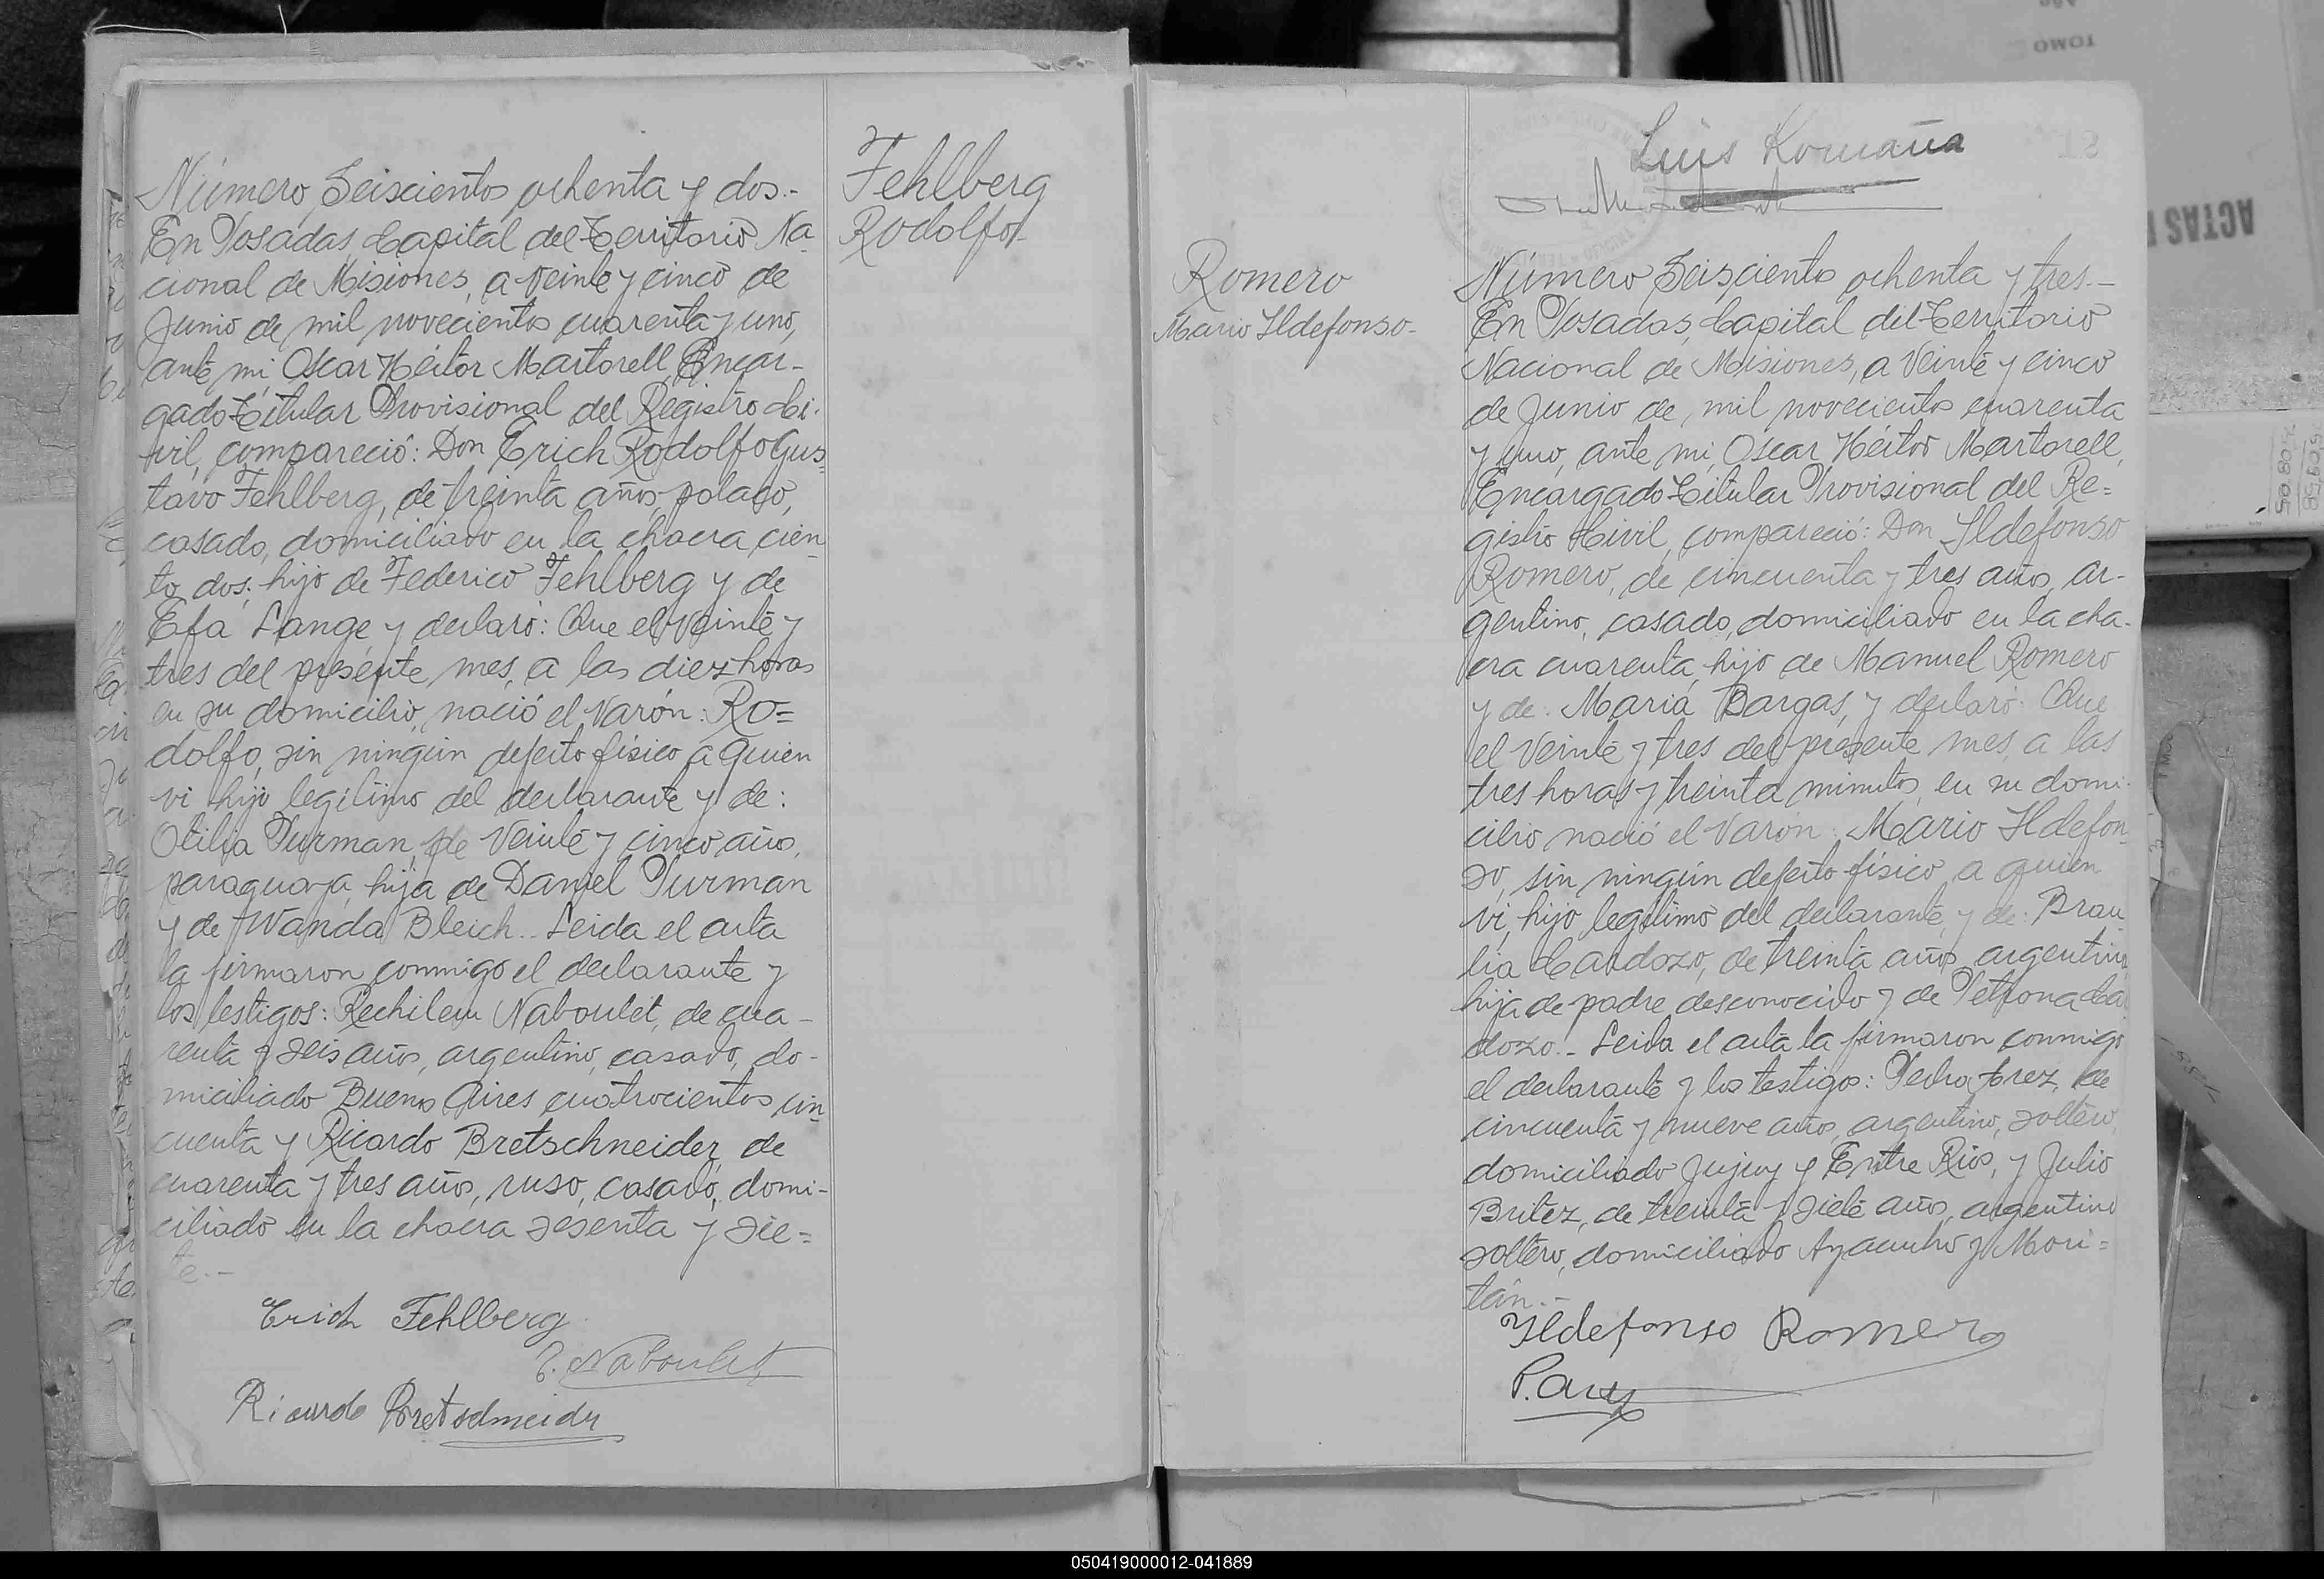 Número Seiscientos ochenta y dos.-
En Posadas, Capital del Territorio Na-
cional de Misiones, a veinte y cinco de
Junio de mil novecientos cuarenta y uno,
ante mi, Oscar Héctor Martorell, Encar-
gado Titular Provisional del Registro Ci-
vil, compareció: Don Erich Rodolfo Gus-
tavo Fehlberg, de treinta años, polaco,
casado, domiciliado en la chacra cien-
to dos; hijo de Federico Fehlberg y de
Efa Lange y declaró: Que el veinte y
tres del presente mes, a las diez horas
en su domicilio, nació el varón: Ro=
dolfo, sin ningún defecto físico a quien
vi hijo legítimo del declarante y de:
Otilia Purman, de veinte y cinco años,
paraguaya, hija de Daniel Purman
y de Wanda Bleich.- Leida el acta
la firmaron conmigo el declarante y
los testigos: Naboulet, de cua-
renta y seis años, argentino, casado, do-
miciliado Buenos Aires cuatrocientos cin-
cuenta y Ricardo Bretschneider, de
cuarenta y tres años, ruso, casado, domi-
ciliado en la chacra sesenta y sie=
te.-
Erich Fehlberg
Naboulet
Ricardo Bretschneider
Fehlberg
Rodolfo-
Luis Romaña
Romero
Mario Ildefonso-
Número Seisciento ochenta y tres.-
En Posadas, Capital del Territorio
Nacional de Misiones, a veinte y cinco
de Junio de mil novecientos cuarenta
y uno, ante mi, Oscar Héctor Martorell,
Encargado Titular Provisional del Re=
gistro Civil, compareció: Don Ildefonso
Romero, de cincuenta y tres años, ar-
gentino, casado, domiciliado en la cha-
cra cuarenta, hijo de Manuel Romero
y de: María Bargas, y declaró: Que
el veinte y tres del presente mes, a las
tres horas y treinta minutos, en su domi-
cilio nació el varón: Mario Ildefon-
so, sin ningún defecto físico, a quien
vi, hijo legítimo del declarante, y de: Brau-
lia Cardozo, de treinta años, argentina,
hija de padre desconocido y de Petrona Car
dozo.- Leida el acta la firmaron conmigo
el declarante y los testigos: Pedro de
cincuenta y nueve años, argentino, soltero,
domiciliado Jujuy y Entre Rios, y Julio
Britez, de treinta y siete años, argentino
soltero, domiciliado Ayacucho y Mori=
tán.-
Ildefonso Romero
TOMO
ACTAS
050419000012-041889